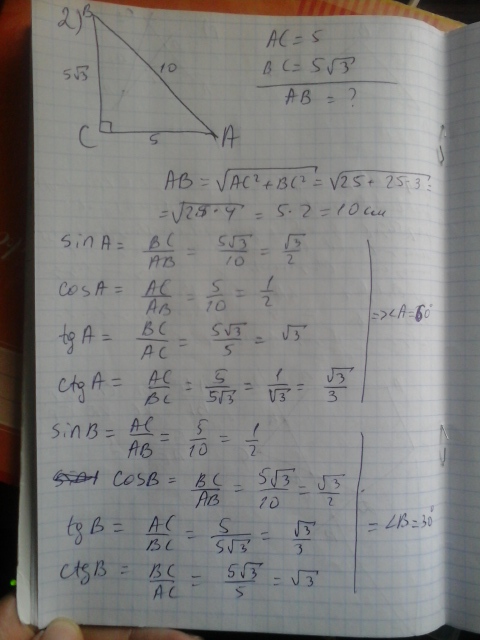 2) B
AC = 5
5√3
10
BC = 5√3
AB = ?
C
5
A
AB = √AC² + BC² = √25 + 25·3 =
= √25·4 = 5·2 = 10 см
sin A = BC/AB = 5√3/10 = √3/2
cos A = AC/AB = 5/10 = 1/2
=> ∠A = 60°
tg A = BC/AC = 5√3/5 = √3
ctg A = AC/BC = 5/5√3 = 1/√3 = √3/3
sin B = AC/AB = 5/10 = 1/2
cos B = BC/AB = 5√3/10 = √3/2
tg B = AC/BC = 5/5√3 = √3/3
= ∠B = 30°
ctg B = BC/AC = 5√3/5 = √3